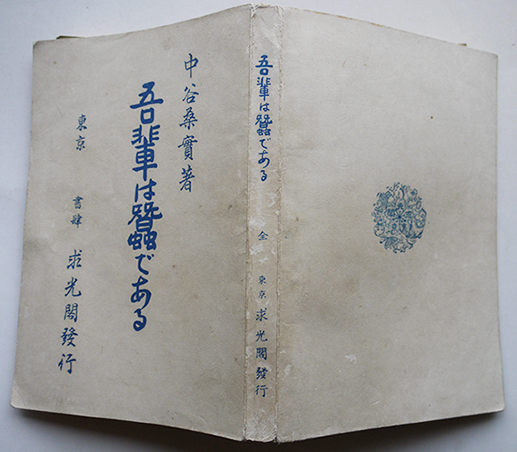 中谷桑實著
吾輩は蠶である
東京 書肆 求光閣發行
吾輩は蠶である 全 東京 求光閣發行